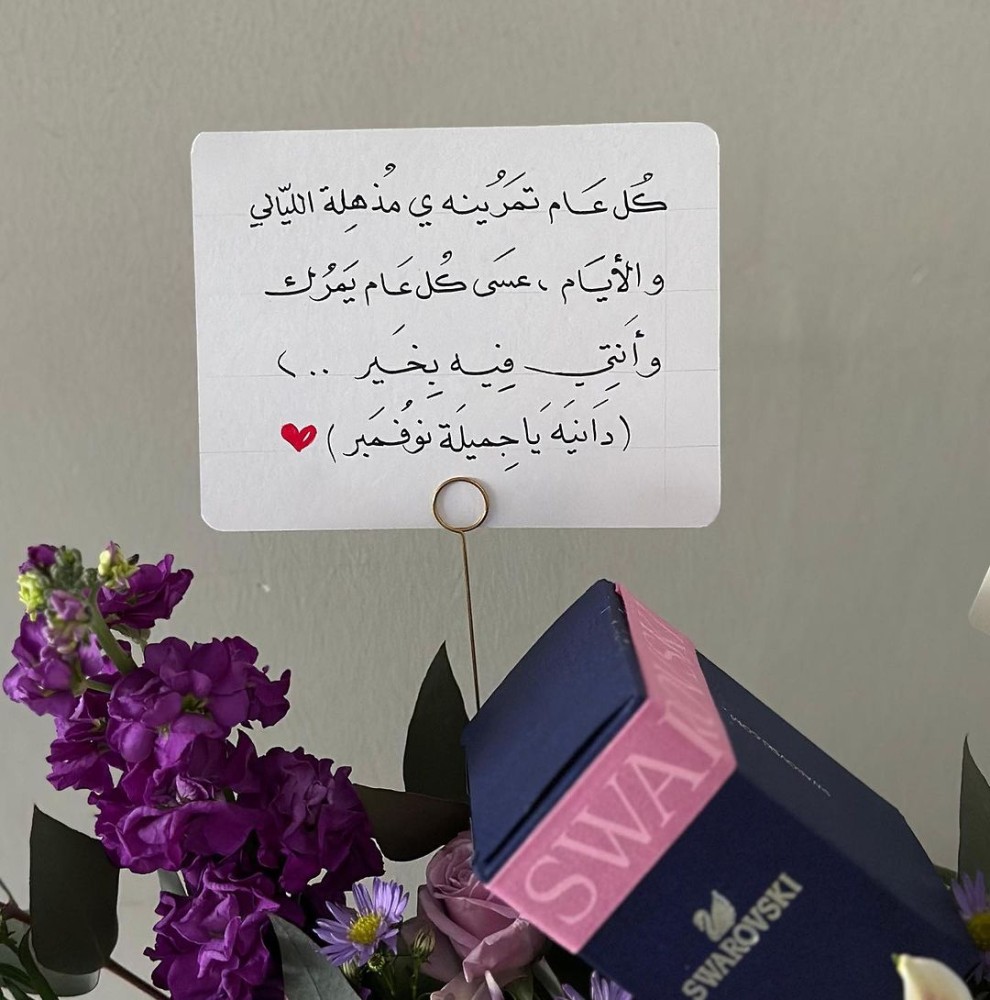 كُل عَام تمَرُينه ي مُذهِلة الليّالي
و الأيَام ، عسَى كُل عَام يَمرُك
و أَنتِي فِيه بِخَير .. )
( دَانيَه يَا جِميلَة نوُفُمَبر ) ♥
SWAROVSKI
SWAROVSKI